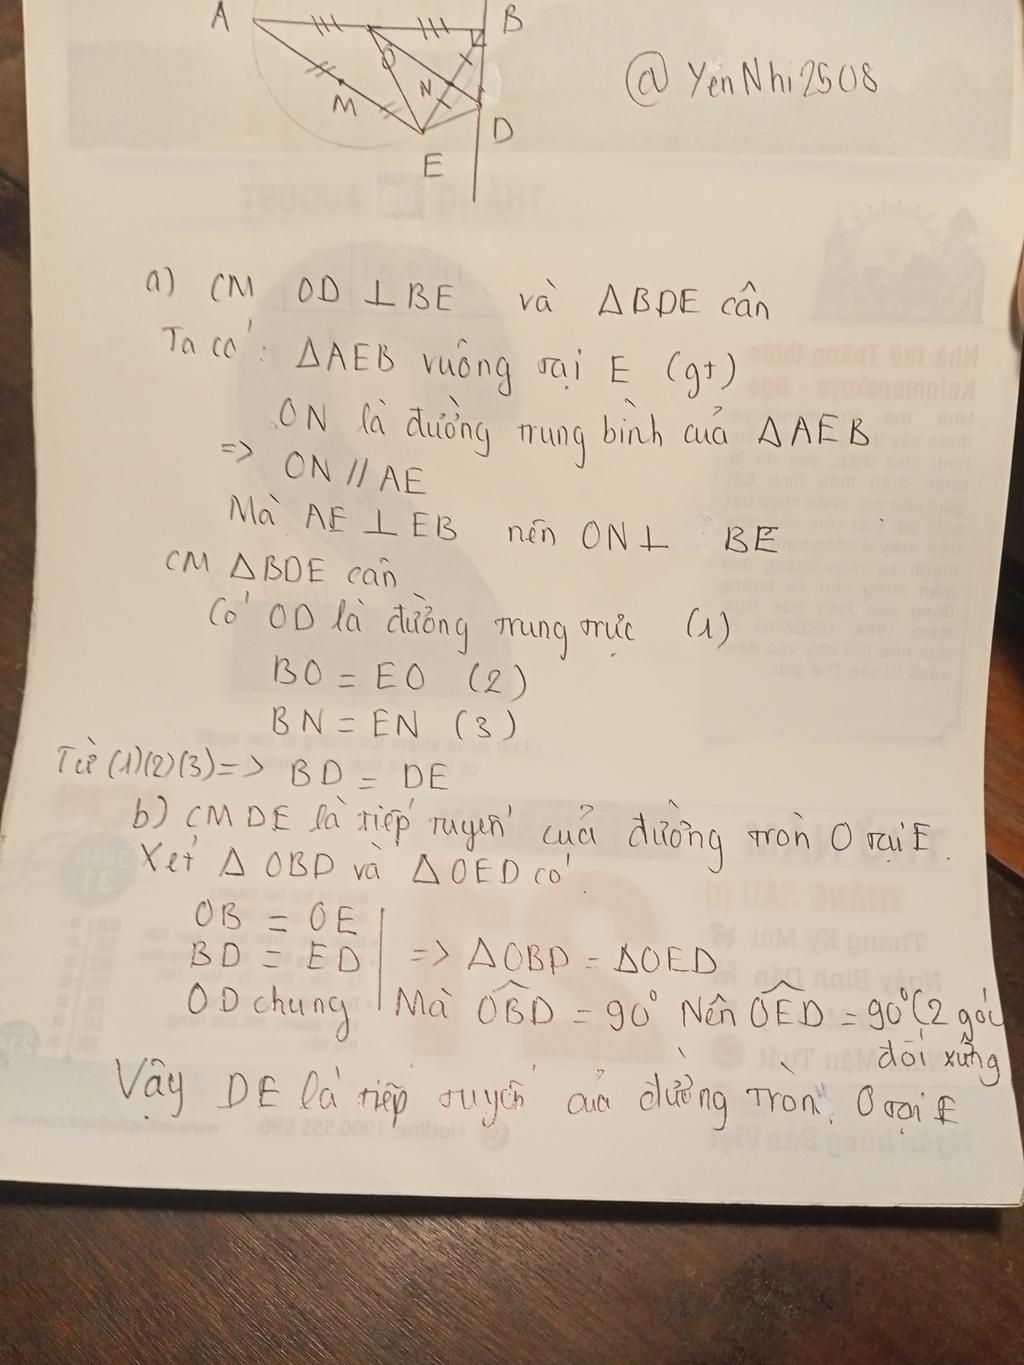 A
B
O
@YenNhi2508
M
N
D
E
a) CM OD ⊥ BE và ΔBDE cân
Ta có: ΔAEB vuông tại E (gt)
ON là đường trung bình của ΔAEB
=> ON // AE
Mà AE ⊥ EB nên ON ⊥ BE
CM ΔBDE cân
Có OD là đường trung trực (1)
BO = EO (2)
BN = EN (3)
Từ (1)(2)(3) => BD = DE
b) CM DE là tiếp tuyến của đường tròn O tại E.
Xét Δ OBD và Δ OED có
OB = OE
BD = ED => ΔOBD = ΔOED
OD chung Mà OBD = 90° Nên OED = 90° (2 góc
đối xứng
Vậy DE là tiếp tuyến của đường tròn O tại E